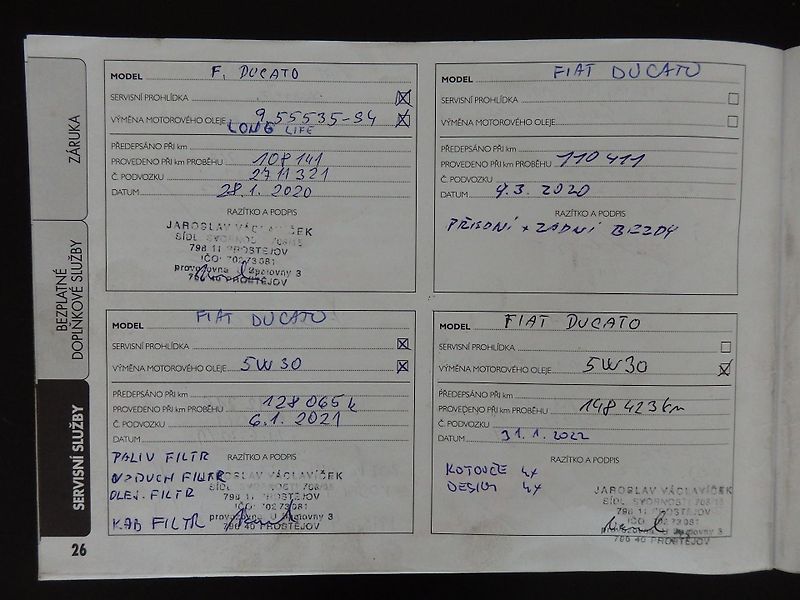 ZÁRUKA
BEZPLATNÉ
DOPLŇKOVÉ SLUŽBY
SERVISNÍ SLUŽBY
26
MODEL F. DUCATO
SERVISNÍ PROHLÍDKA
VÝMĚNA MOTOROVÉHO OLEJE 9.55535-S4
LONG LIFE
PŘEDEPSÁNO PŘI km
PROVEDENO PŘI km PROBĚHU 108 141
Č. PODVOZKU 2711321
DATUM 28.1. 2020
RAZÍTKO A PODPIS
JAROSLAV VÁCLAVÍČEK
SÍDL. SVORNOSTI 708/15
796 11 PROSTĚJOV
IČO: 70273081
provozovna U Spalovny 3
796 40 PROSTĚJOV
MODEL FIAT DUCATO
SERVISNÍ PROHLÍDKA
VÝMĚNA MOTOROVÉHO OLEJE
PŘEDEPSÁNO PŘI km
PROVEDENO PŘI km PROBĚHU 110 411
Č. PODVOZKU
DATUM 9.3. 2020
RAZÍTKO A PODPIS
PŘEDNÍ + ZADNÍ BRZDY
MODEL FIAT DUCATO
SERVISNÍ PROHLÍDKA
VÝMĚNA MOTOROVÉHO OLEJE 5W30
PŘEDEPSÁNO PŘI km
PROVEDENO PŘI km PROBĚHU 128 065k
Č. PODVOZKU 6.1. 2021
DATUM
RAZÍTKO A PODPIS
PALIV FILTR
VZDUCH FILTR
OLEJ. FILTR
KAB FILTR
JAROSLAV VÁCLAVÍČEK
SÍDL. SVORNOSTI 708/15
796 11 PROSTĚJOV
IČO: 70273081
provozovna U Spalovny 3
796 40 PROSTĚJOV
MODEL FIAT DUCATO
SERVISNÍ PROHLÍDKA
VÝMĚNA MOTOROVÉHO OLEJE 5W30
PŘEDEPSÁNO PŘI km
PROVEDENO PŘI km PROBĚHU 148 423km
Č. PODVOZKU
DATUM 31.1. 2022
RAZÍTKO A PODPIS
KOTOUČE 4x
DESKY 4x
JAROSLAV VÁCLAVÍČEK
SÍDL. SVORNOSTI 708/15
796 11 PROSTĚJOV
IČO: 70273081
provozovna U Spalovny 3
796 40 PROSTĚJOV